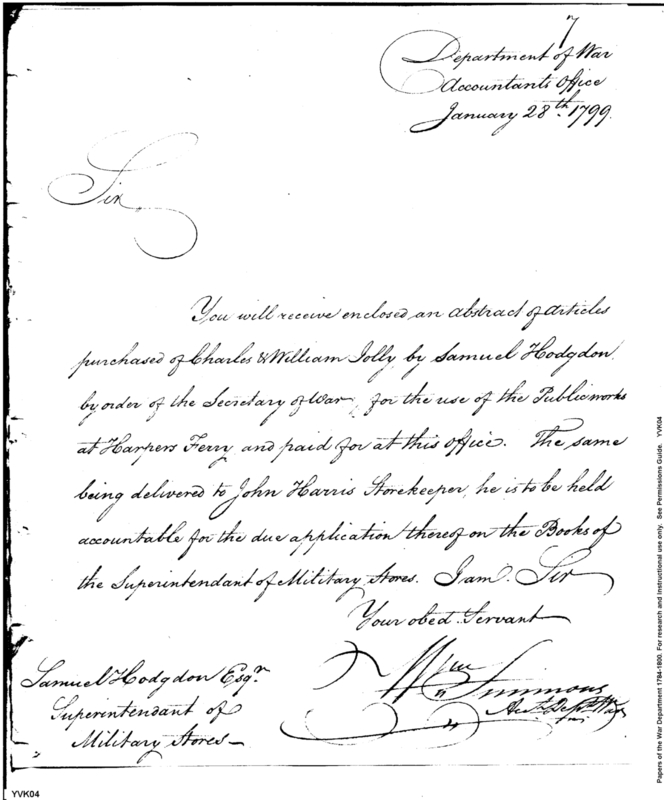 7
Department of War
Accountants Office
January 28th. 1799.
Sir,
You will receive enclosed an abstract of articles
purchased of Charles & William Jolly, by Samuel Hodgdon,
by order of the Secretary of War, for the use of the Public works
at Harpers Ferry and paid for at this office. The same
being delivered to John Harris Storekeeper, he is to be held
accountable for the due application thereof on the Books of
the Superintendant of Military Stores. I am. Sir
Your obed. Servant
Wm Simmons
Acct. Dept. War
Samuel Hodgdon Esqr.
Superintendant of
Military Stores
Papers of the War Department 1784-1800. For research and instructional use only. See Permissions Guide. YVK04
YVK04